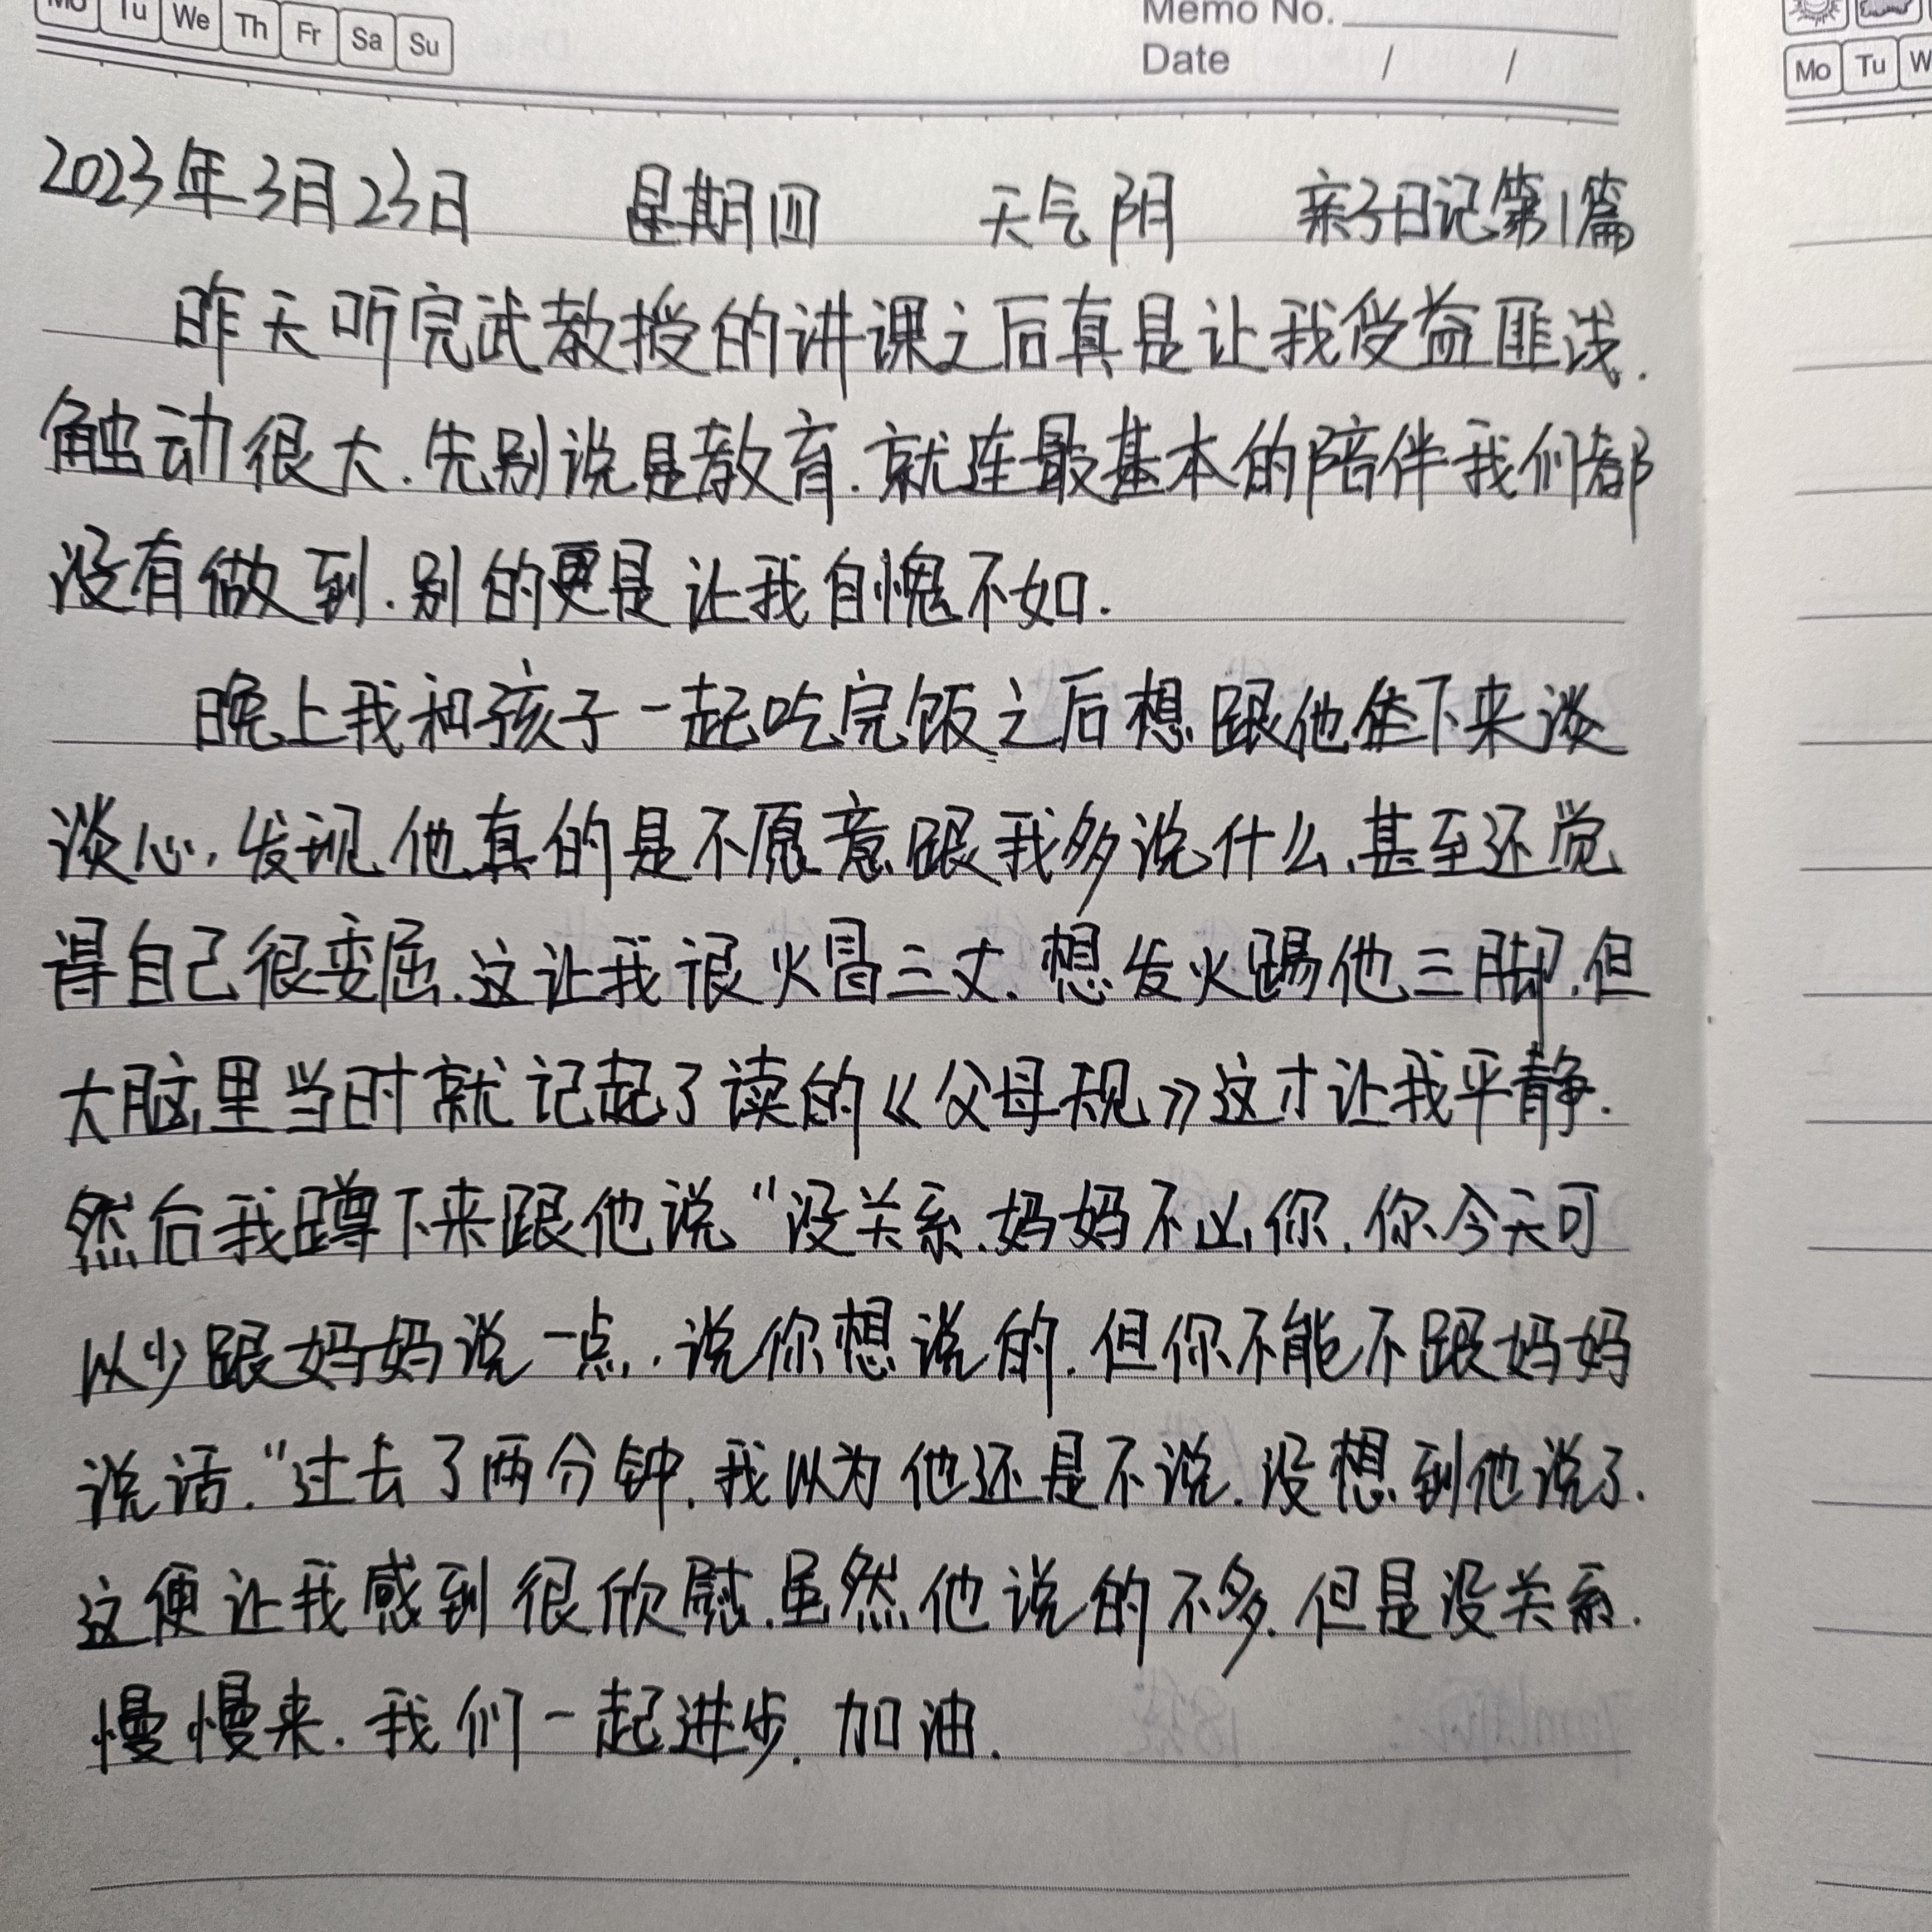 Mo Tu We Th Fr Sa Su
Memo No.
Date / /
Mo Tu W
2023年3月23日 星期四 天气阴 亲子日记第1篇
昨天听完武教授的讲课之后真是让我受益匪浅.
触动很大.先别说是教育.就连最基本的陪伴我们都
没有做到.别的更是让我自愧不如.
晚上我和孩子一起吃完饭之后想跟他坐下来谈
谈心,发现他真的是不愿意跟我多说什么、甚至还觉
得自己很委屈.这让我很火冒三丈.想发火踢他三脚.但
大脑里当时就记起了读的《父母规》这才让我平静.
然后我蹲下来跟他说“没关系.妈妈不凶你.你今天可
以少跟妈妈说一点.说你想说的.但你不能不跟妈妈
说话.“过去了两分钟.我以为他还是不说.没想到他说了.
这便让我感到很欣慰.虽然他说的不多.但是没关系.
慢慢来.我们一起进步.加油.